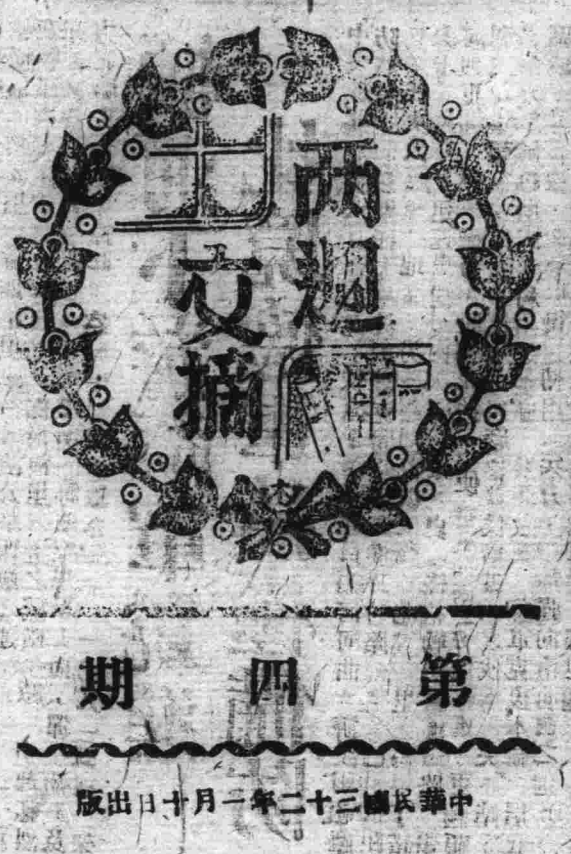 两週
文摘
第四期
中華民國三十二年一月十日出版